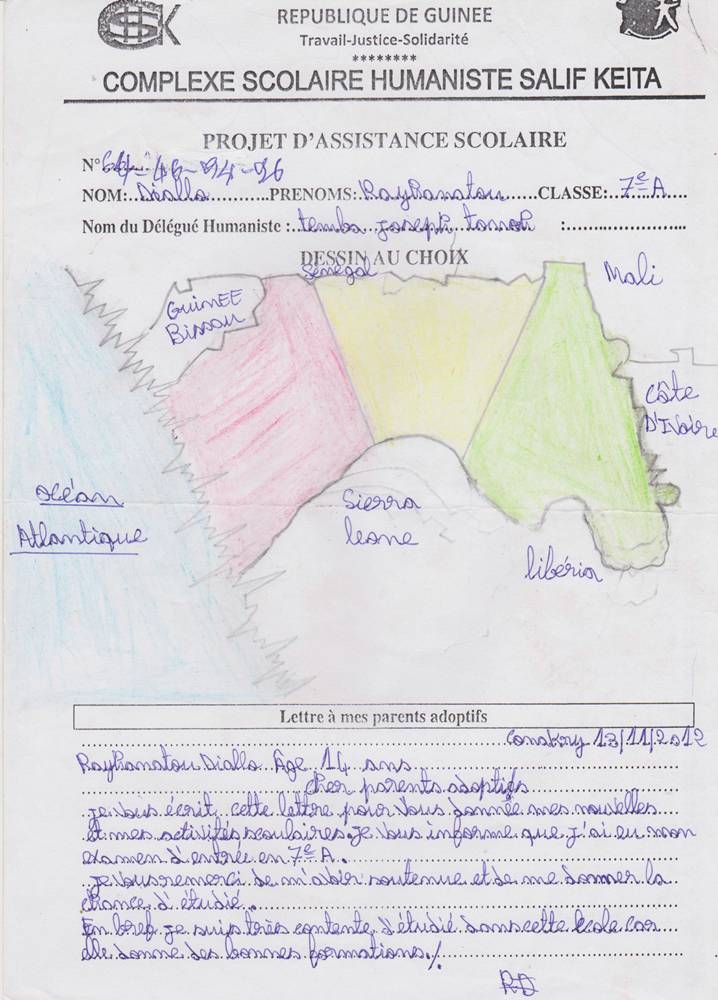 REPUBLIQUE DE GUINEE
Travail-Justice-Solidarité
********
COMPLEXE SCOLAIRE HUMANISTE SALIF KEITA
PROJET D'ASSISTANCE SCOLAIRE
N° 64-46-94-96
NOM: Diallo PRENOMS: Rayhanatou CLASSE: 7e A
Nom du Délégué Humaniste : temba joseph :
DESSIN AU CHOIX
Sénégal
Mali
GUINEE
Bissau
Côte
D'Ivoire
Océan
Atlantique
Sierra
leone
libéria
Lettre à mes parents adoptifs
Conakry 13/11/2012
Rayhanatou Diallo Âge 14 ans
Cher parents adoptifs
je vous écrit cette lettre pour vous donnée mes nouvelles
Et mes activités scoulaires. je vous informe que j'ai eu mon
examen d'entrée en 7e A.
je vous remerci de m'avoir soutenue et de me donner la
chance d'étudié.
En bref je suis très contente d'étudié dans cette école car
elle donne des bonnes formations./.
RD